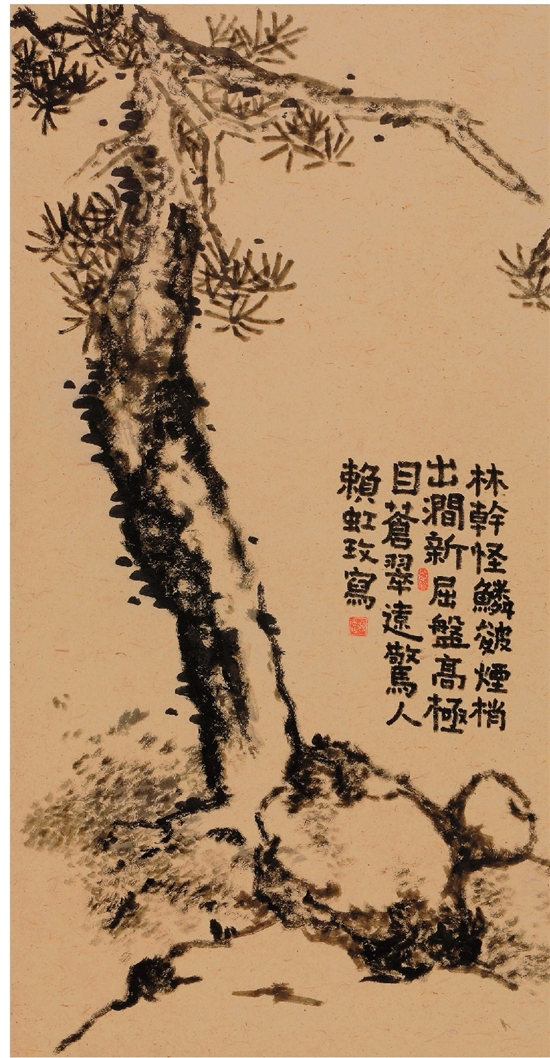 林幹怪鱗皴煙梢
出澗新屈盤高極
目蒼翠遠驚人
賴虹玫寫